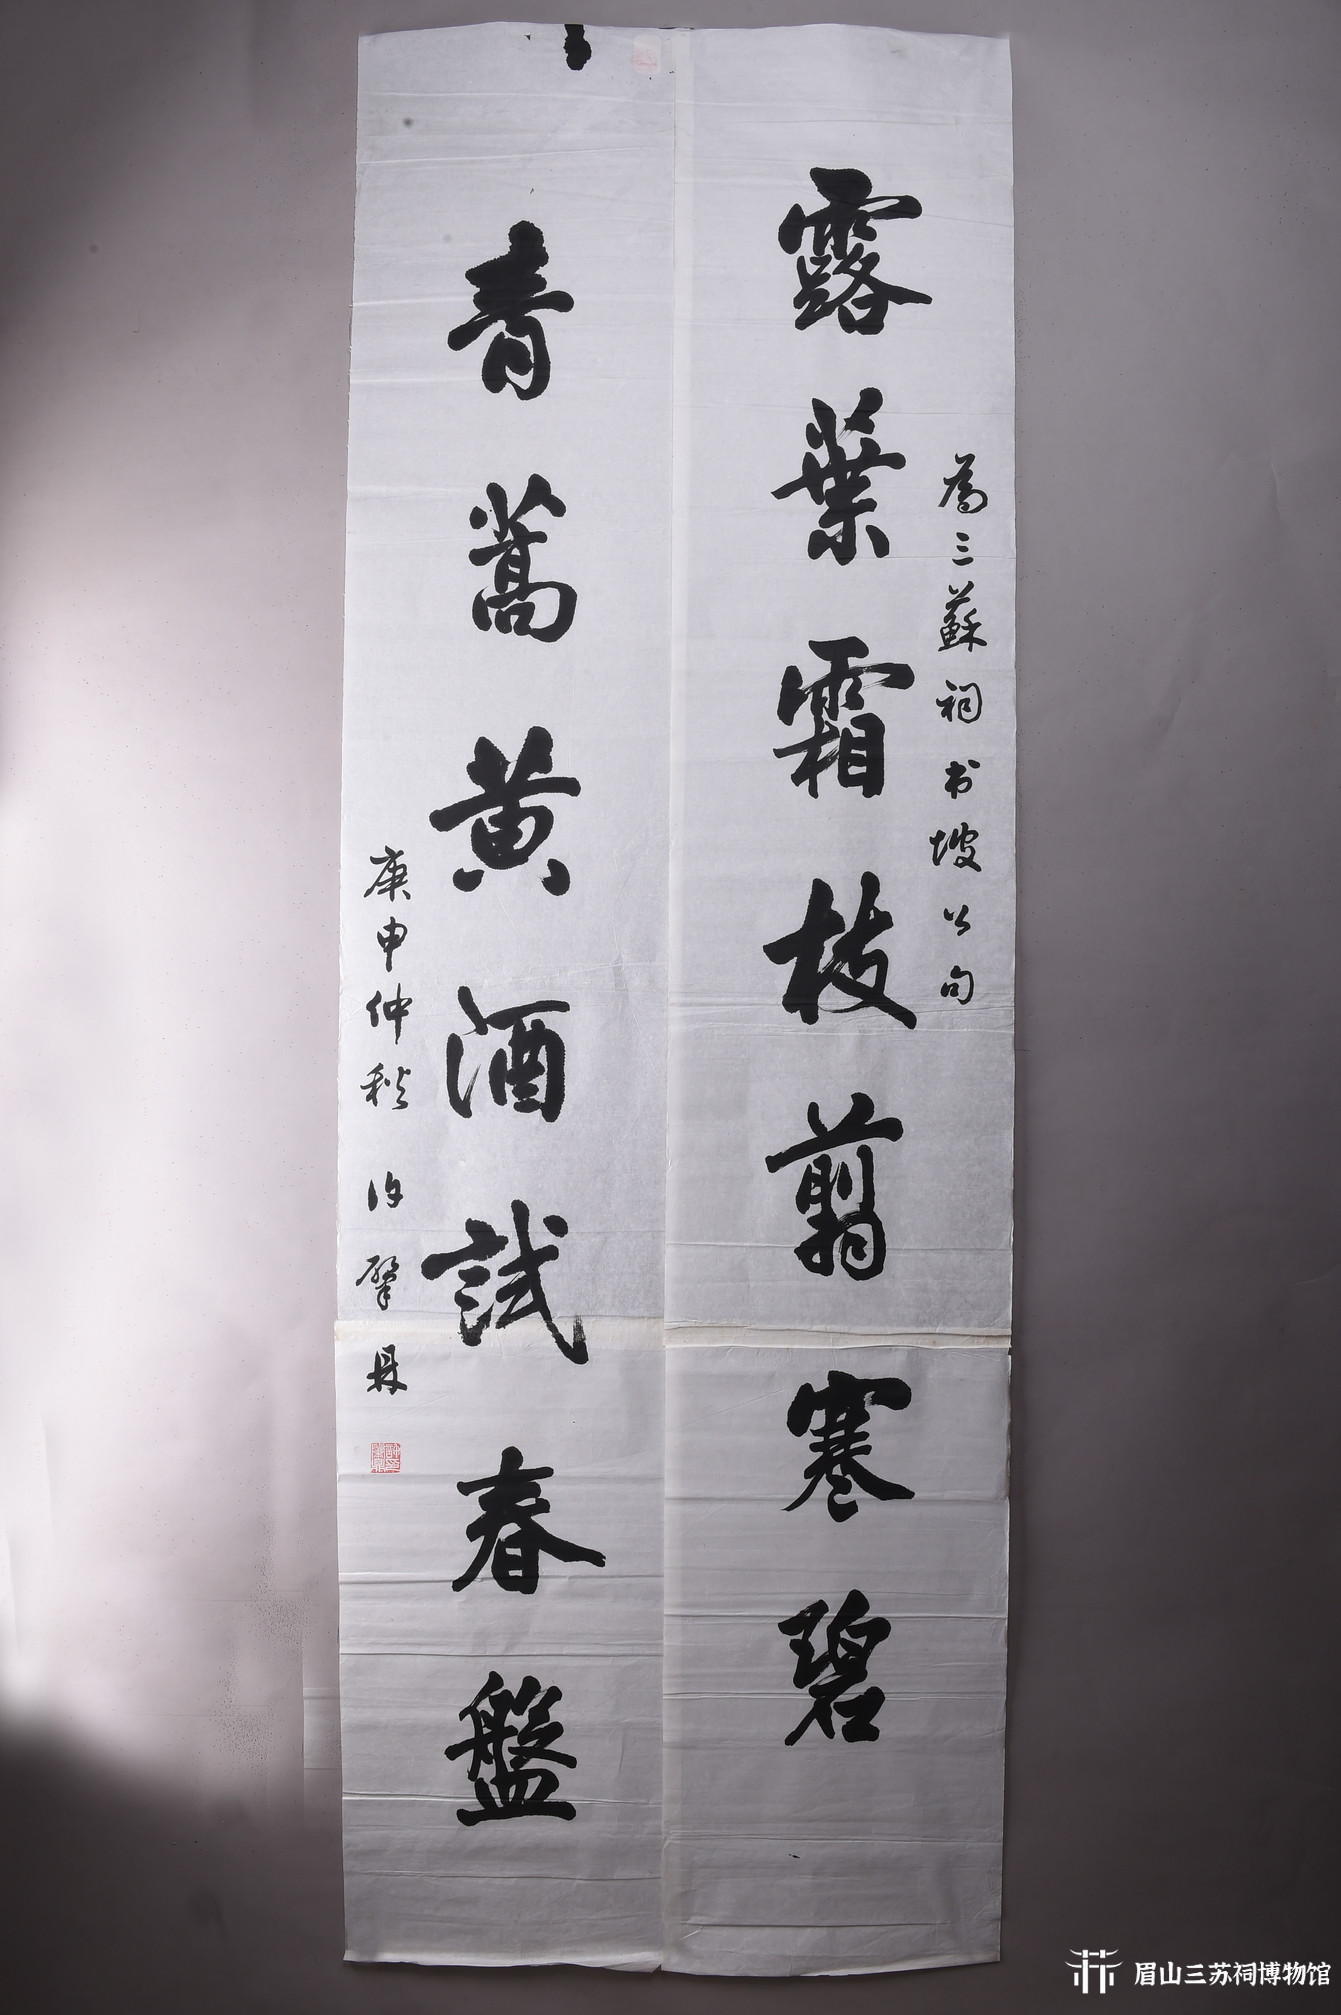 為三蘇祠书坡公句
露葉霜枝剪寒碧
青蒿黄酒試春盤
庚申仲秋 许肇鼎
眉山三苏祠博物馆